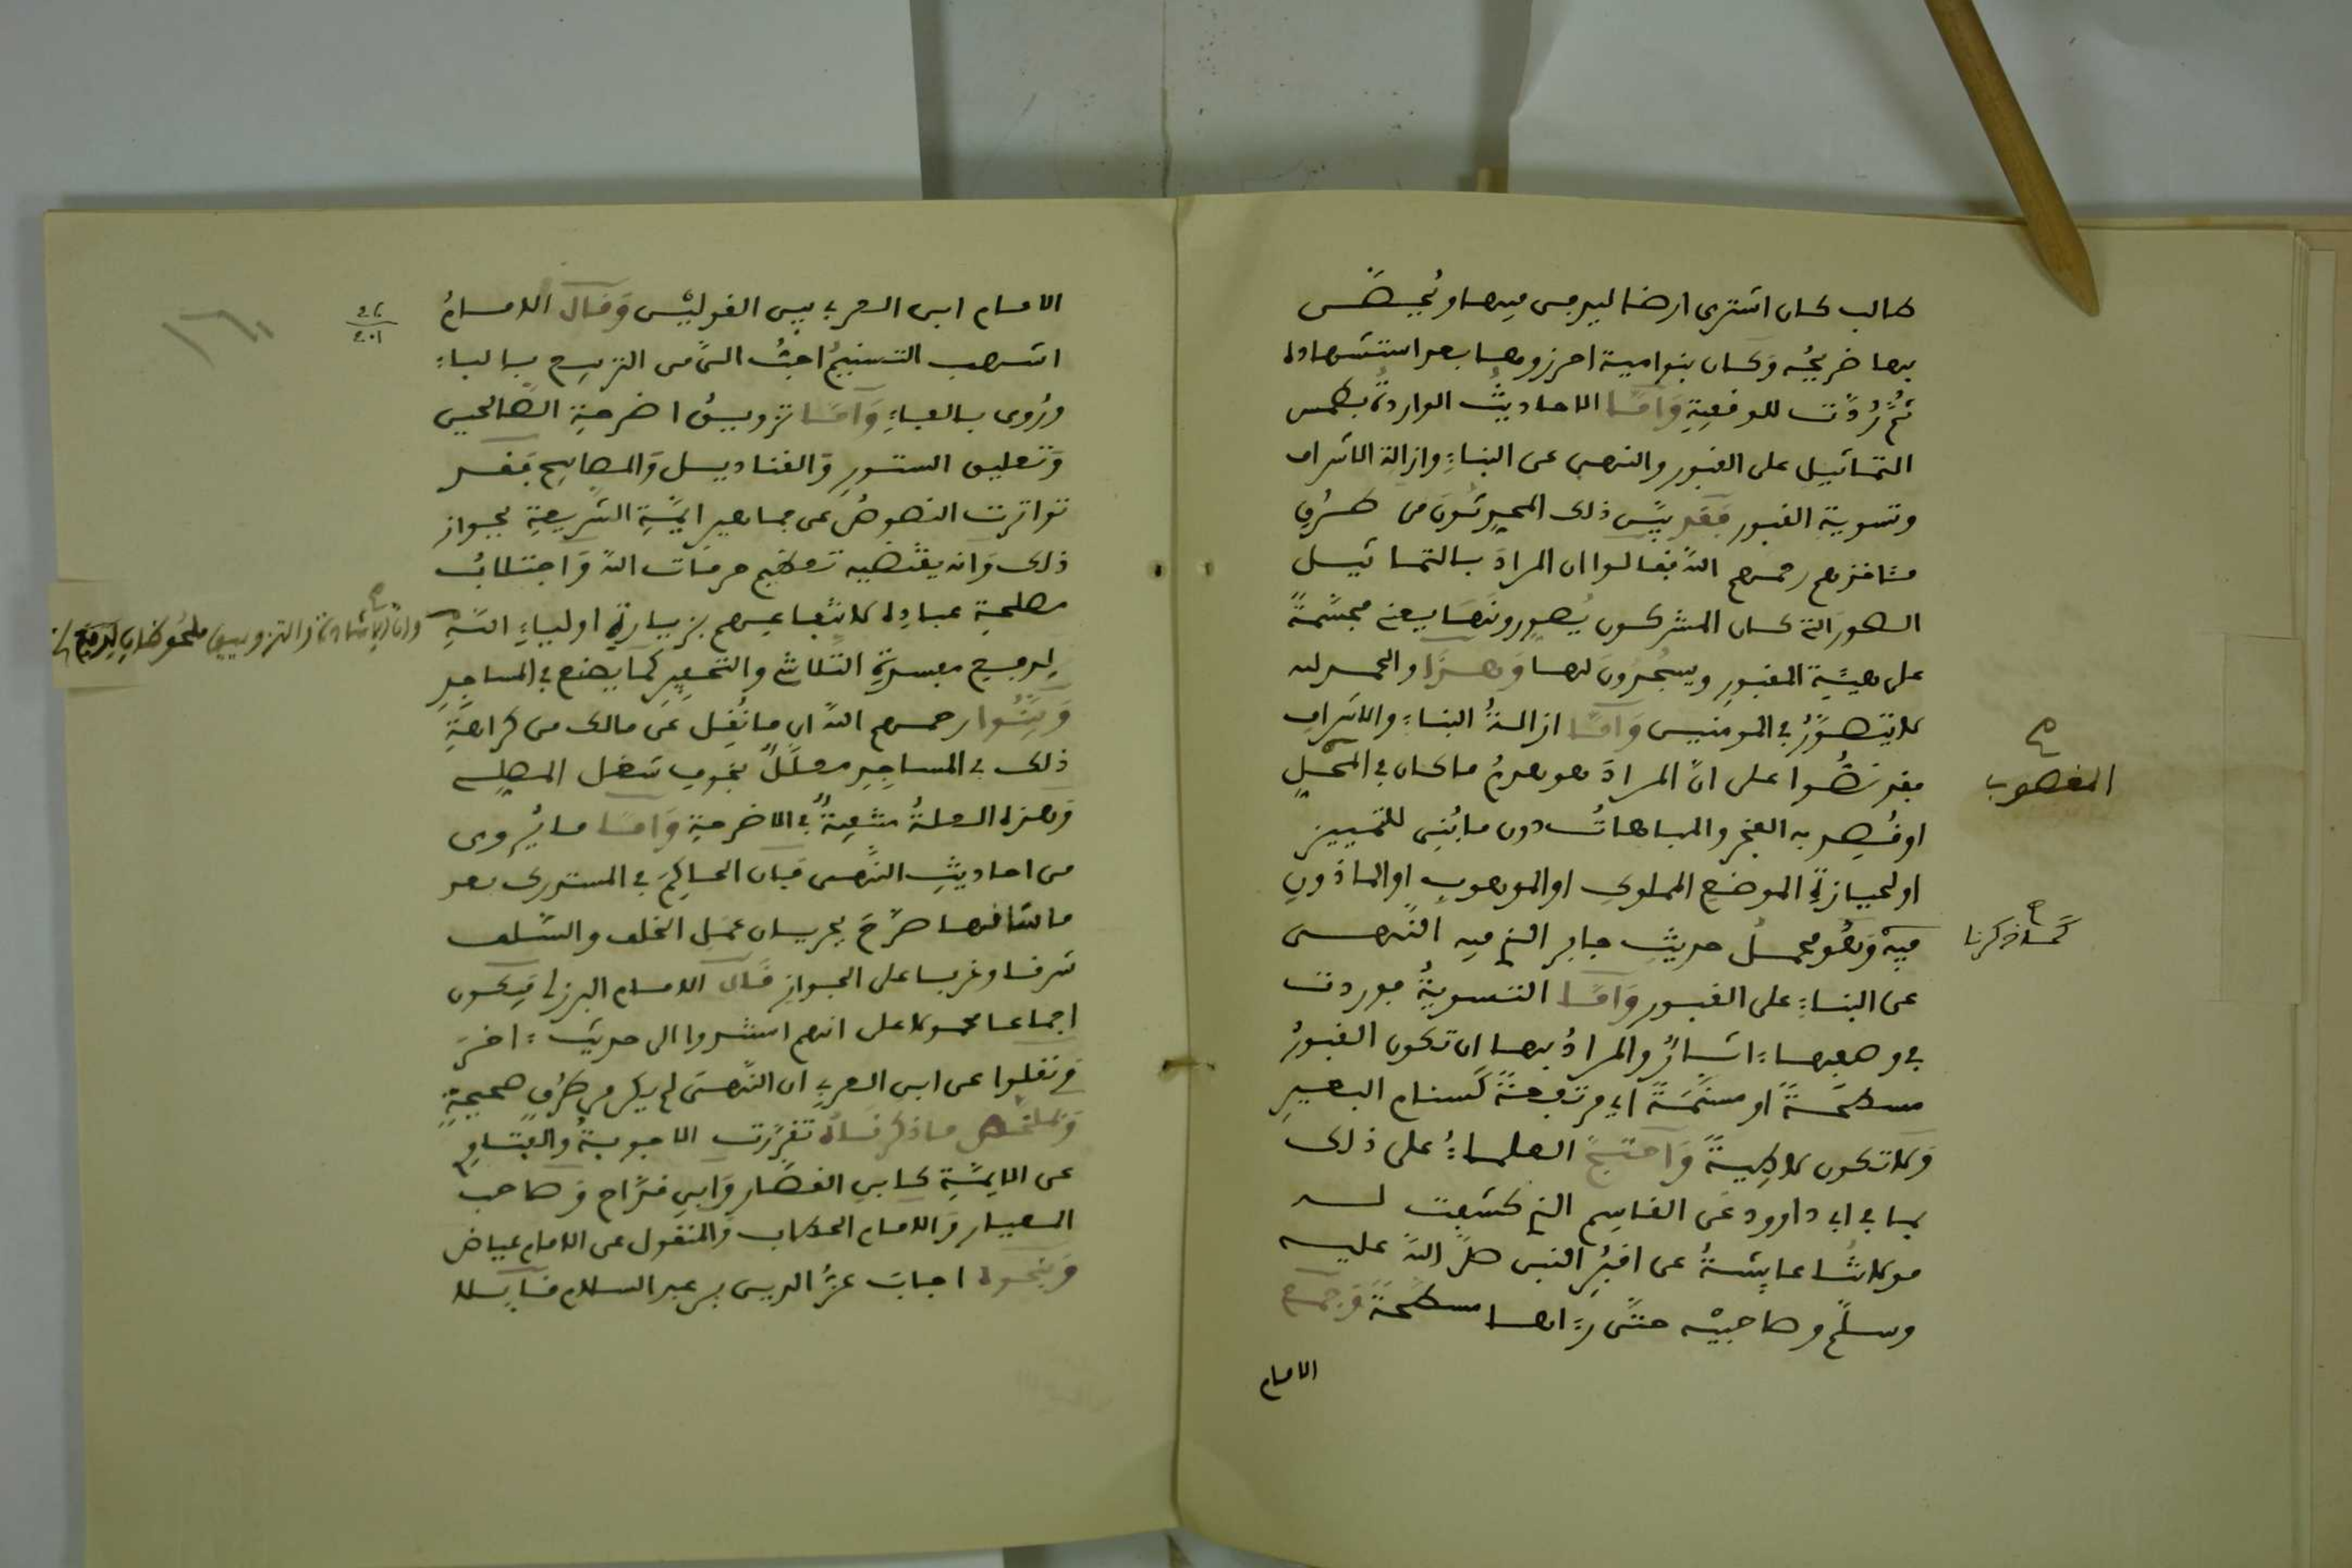 طالب كان اشترى ارضا ليدفن فيها ويجصص
بها ضريحه وكان بنوامية احرزوها بعد استشهاده
ثم رُدّت للوقفية وَامّا الاحاديثُ الواردة بطمس
التماثيل على القبور والنهى عن البناء وازالة الاشراف
وتسوية القبور فقد بيّن ذلك المحدثون من طرق
مشافهم رحمهم الله فقالوا ان المرادَ بالتماثيل
الصور التى كان المشركون يُصورونها يعنى مجسّمة
على هيئة المقبور ويسجدون لها وَهذا والحمد لله
لا يتصوّرُ في المومنين وَامّا ازالةُ البناء والاشراف
فقد نصُّوا على انّ المرادَ هو هدمُ ما كان في المحل
المغصوب
او قُصد به الفخر والمباهاتُ دون ما بُني للتمييز
او لحيازة الموضع المملوك او الموهوب او الماذون
فيه وَهُو محملُ حديث جابر الذي فيه النّهى
كَما ذكرنا
عن البناء على القبور وَامّا التسويةُ فوردت
في وصفها اثارٌ والمرادُ بها ان تكون القبورُ
مسطّحةً او مسنّمةً اي مرتفعةً كسنام البعير
وَلا تكون لاطيةً وَاحتجّ العلماءُ على ذلك
بما في ابي داوود عَن القاسم الذي كشفت له
مولاتُنا عايشةُ عن اقبُر النبى صلّى اللّه عليه
وسلّم وصاحبيْه حتّى رءاها مسطّحةً وَجمع
الامام
الامام ابن العربي بين القوليْن وَقال الامامُ
اشهب التسنيمُ احبُّ الىّ من التربيع بالباء
ورُوى بالفاء وَامّا تزويقُ اضرحة الصّالحين
وَتعليق الستور وَالقناديل وَالمصابيح فقد
تواترت النصوصُ عن جماهير ايمّة الشريعة بجواز
ذلك وَانه يقتضيه تعظيم حرمات اللّه وَاجتلابُ
مصلحة عباده لانتفاعهم بزيارة اولياء اللّه
وانّ الاشادة والتزويق ملحُوظان
لدفع مفسدة التلاشى والتحقير كما يصنع في المساجد
وَبيّنُوا رحمهم اللّه ان ما نُقل عن مالك من كراهة
ذلك في المساجد معلّلٌ بخوف شغل المصلى
وَهذه العلةُ منتفيةٌ في الاضرحة وَامّا ما يُروى
من احاديث النّهى فان الحاكِمَ في المستدرك بعد
ما ساقها صرّحَ بجريان عمَل الخلف والسّلف
شرقا وغربا على الجواز قَال الامام البرزلي فيكون
اجماعا محمولا على انهم استندوا الى حديث اخرَ
وَنقلوا عن ابن العربي ان النّهىَ لم يكن من طُرقٍ صحيحةٍ
وَبملخّص ما ذكرناهُ تقرّرت الاجوبةُ والفتاوِ
عن الايمّة كابن القصّار وَابن فرّاح وَصاحب
المعيار وَالامام الحطاب وَالمنقول عن الامام عياض
وَبنحوه اجابَ عزُّ الدين بن عبد السلام قايلا